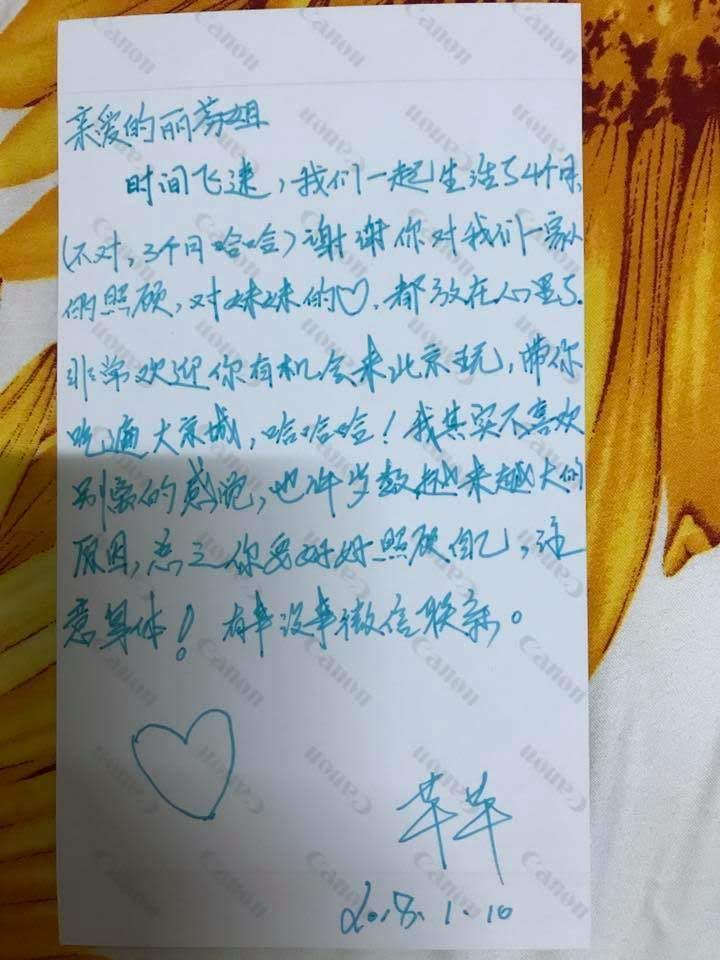 亲爱的丽芬姐
时间飞速，我们一起生活了4个月
(不对，3个月哈哈）谢谢你对我们一家人
的照顾，对妹妹的♡，都放在心里了.
非常欢迎你有机会来北京玩，带你
吃遍大京城，哈哈哈！我其实不喜欢
别离的感觉，也许岁数越来越大的
原因，总之你要好好照顾自己，注
意身体！有事没事微信联系。
芊芊
2018.1.10
Canon